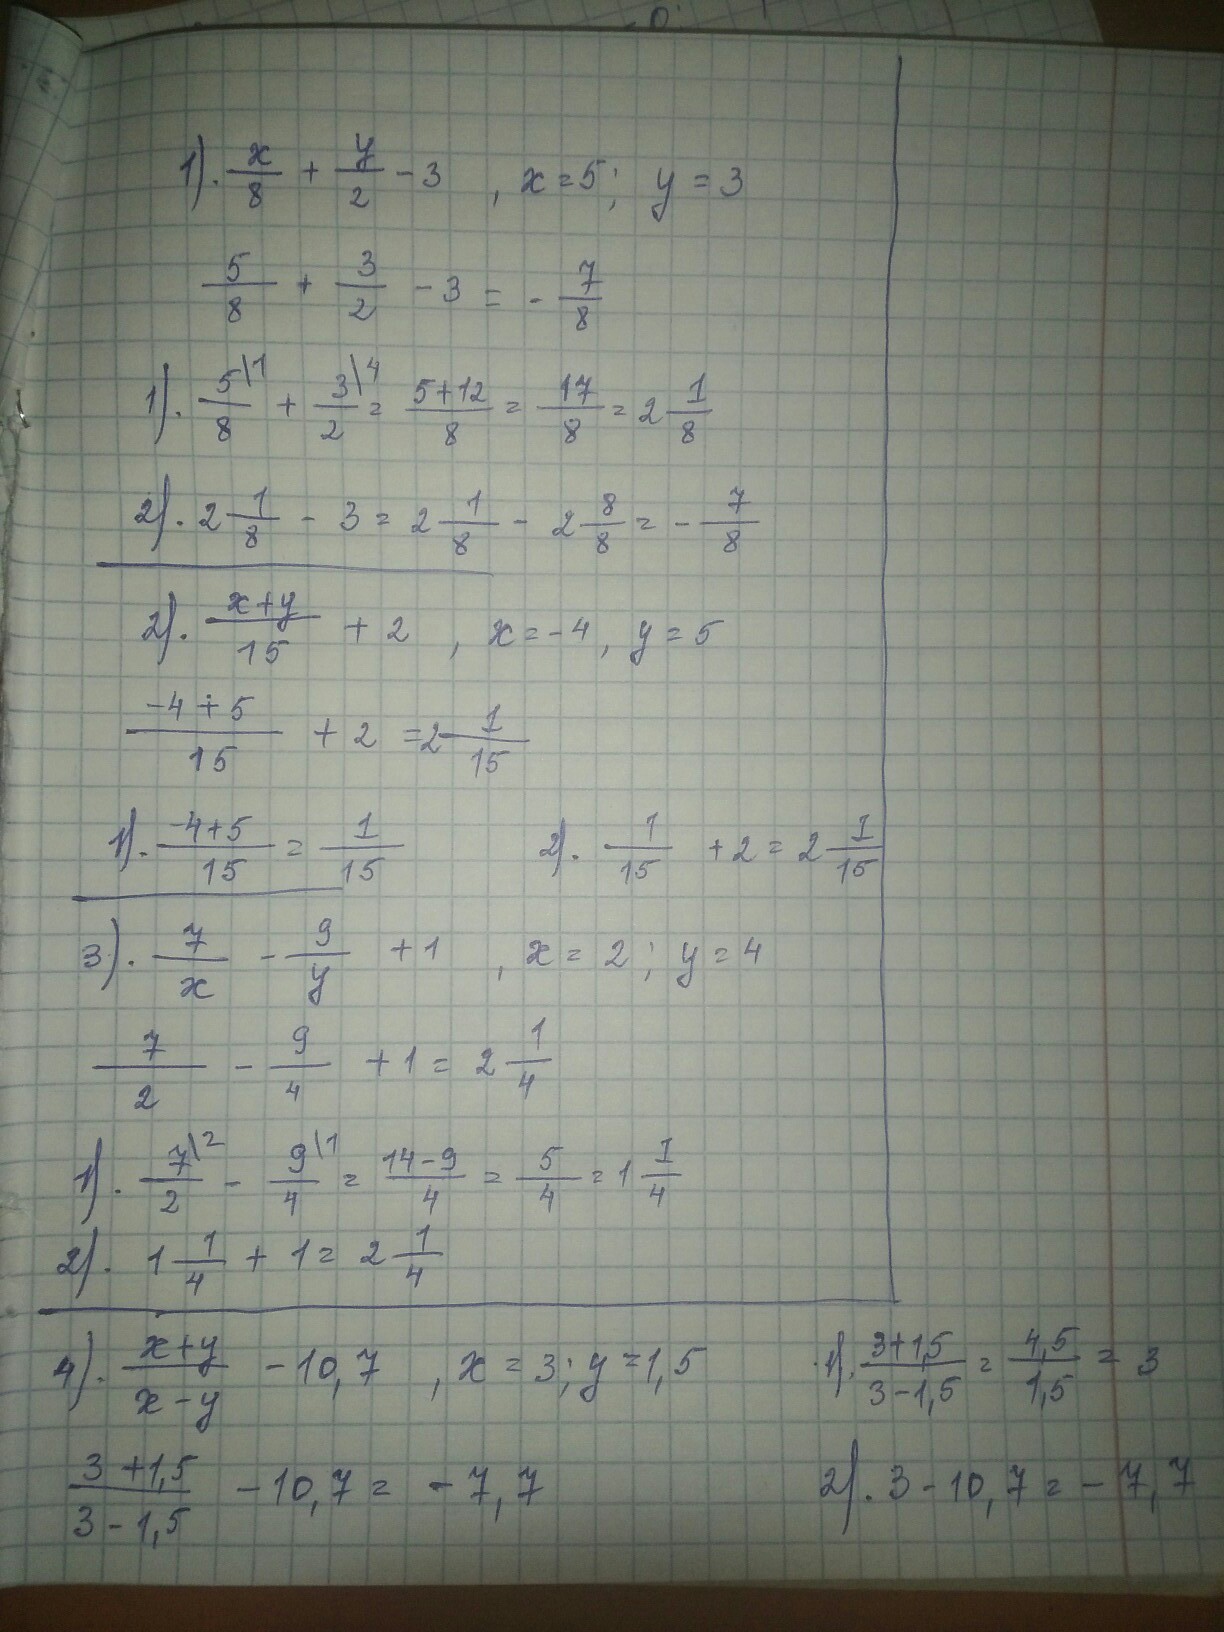 1). x/8 + y/2 - 3 , x = 5; y = 3
5/8 + 3/2 - 3 = - 7/8
1). 5\1/8 + 3\4/2 = 5+12/8 = 17/8 = 2 1/8
2). 2 1/8 - 3 = 2 1/8 - 2 8/8 = - 7/8
2). x+y/15 + 2 , x = -4, y = 5
-4+5/15 + 2 = 2 1/15
1). -4+5/15 = 1/15 2). 1/15 + 2 = 2 1/15
3). 7/x - 9/y + 1 , x = 2; y = 4
7/2 - 9/4 + 1 = 2 1/4
1). 7\2/2 - 9\1/4 = 14-9/4 = 5/4 = 1 1/4
2). 1 1/4 + 1 = 2 1/4
4). x+y/x-y - 10,7 , x = 3; y = 1,5
3+1,5/3-1,5 - 10,7 = - 7,7
1). 3+1,5/3-1,5 = 4,5/1,5 = 3
2). 3 - 10,7 = - 7,7